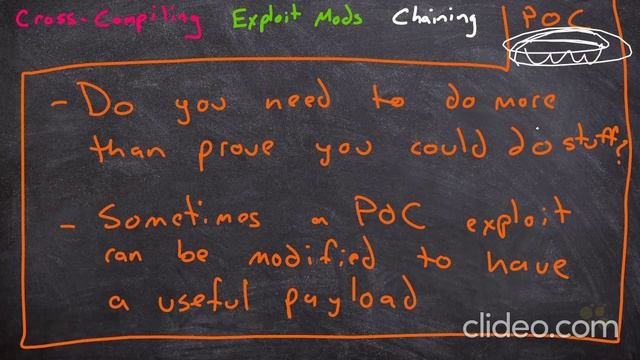 Cross-Compiling Exploit Mods Chaining POC
- Do you need to do more
than prove you could do stuff?
- Sometimes a POC exploit
can be modified to have
a useful payload
clideo.com